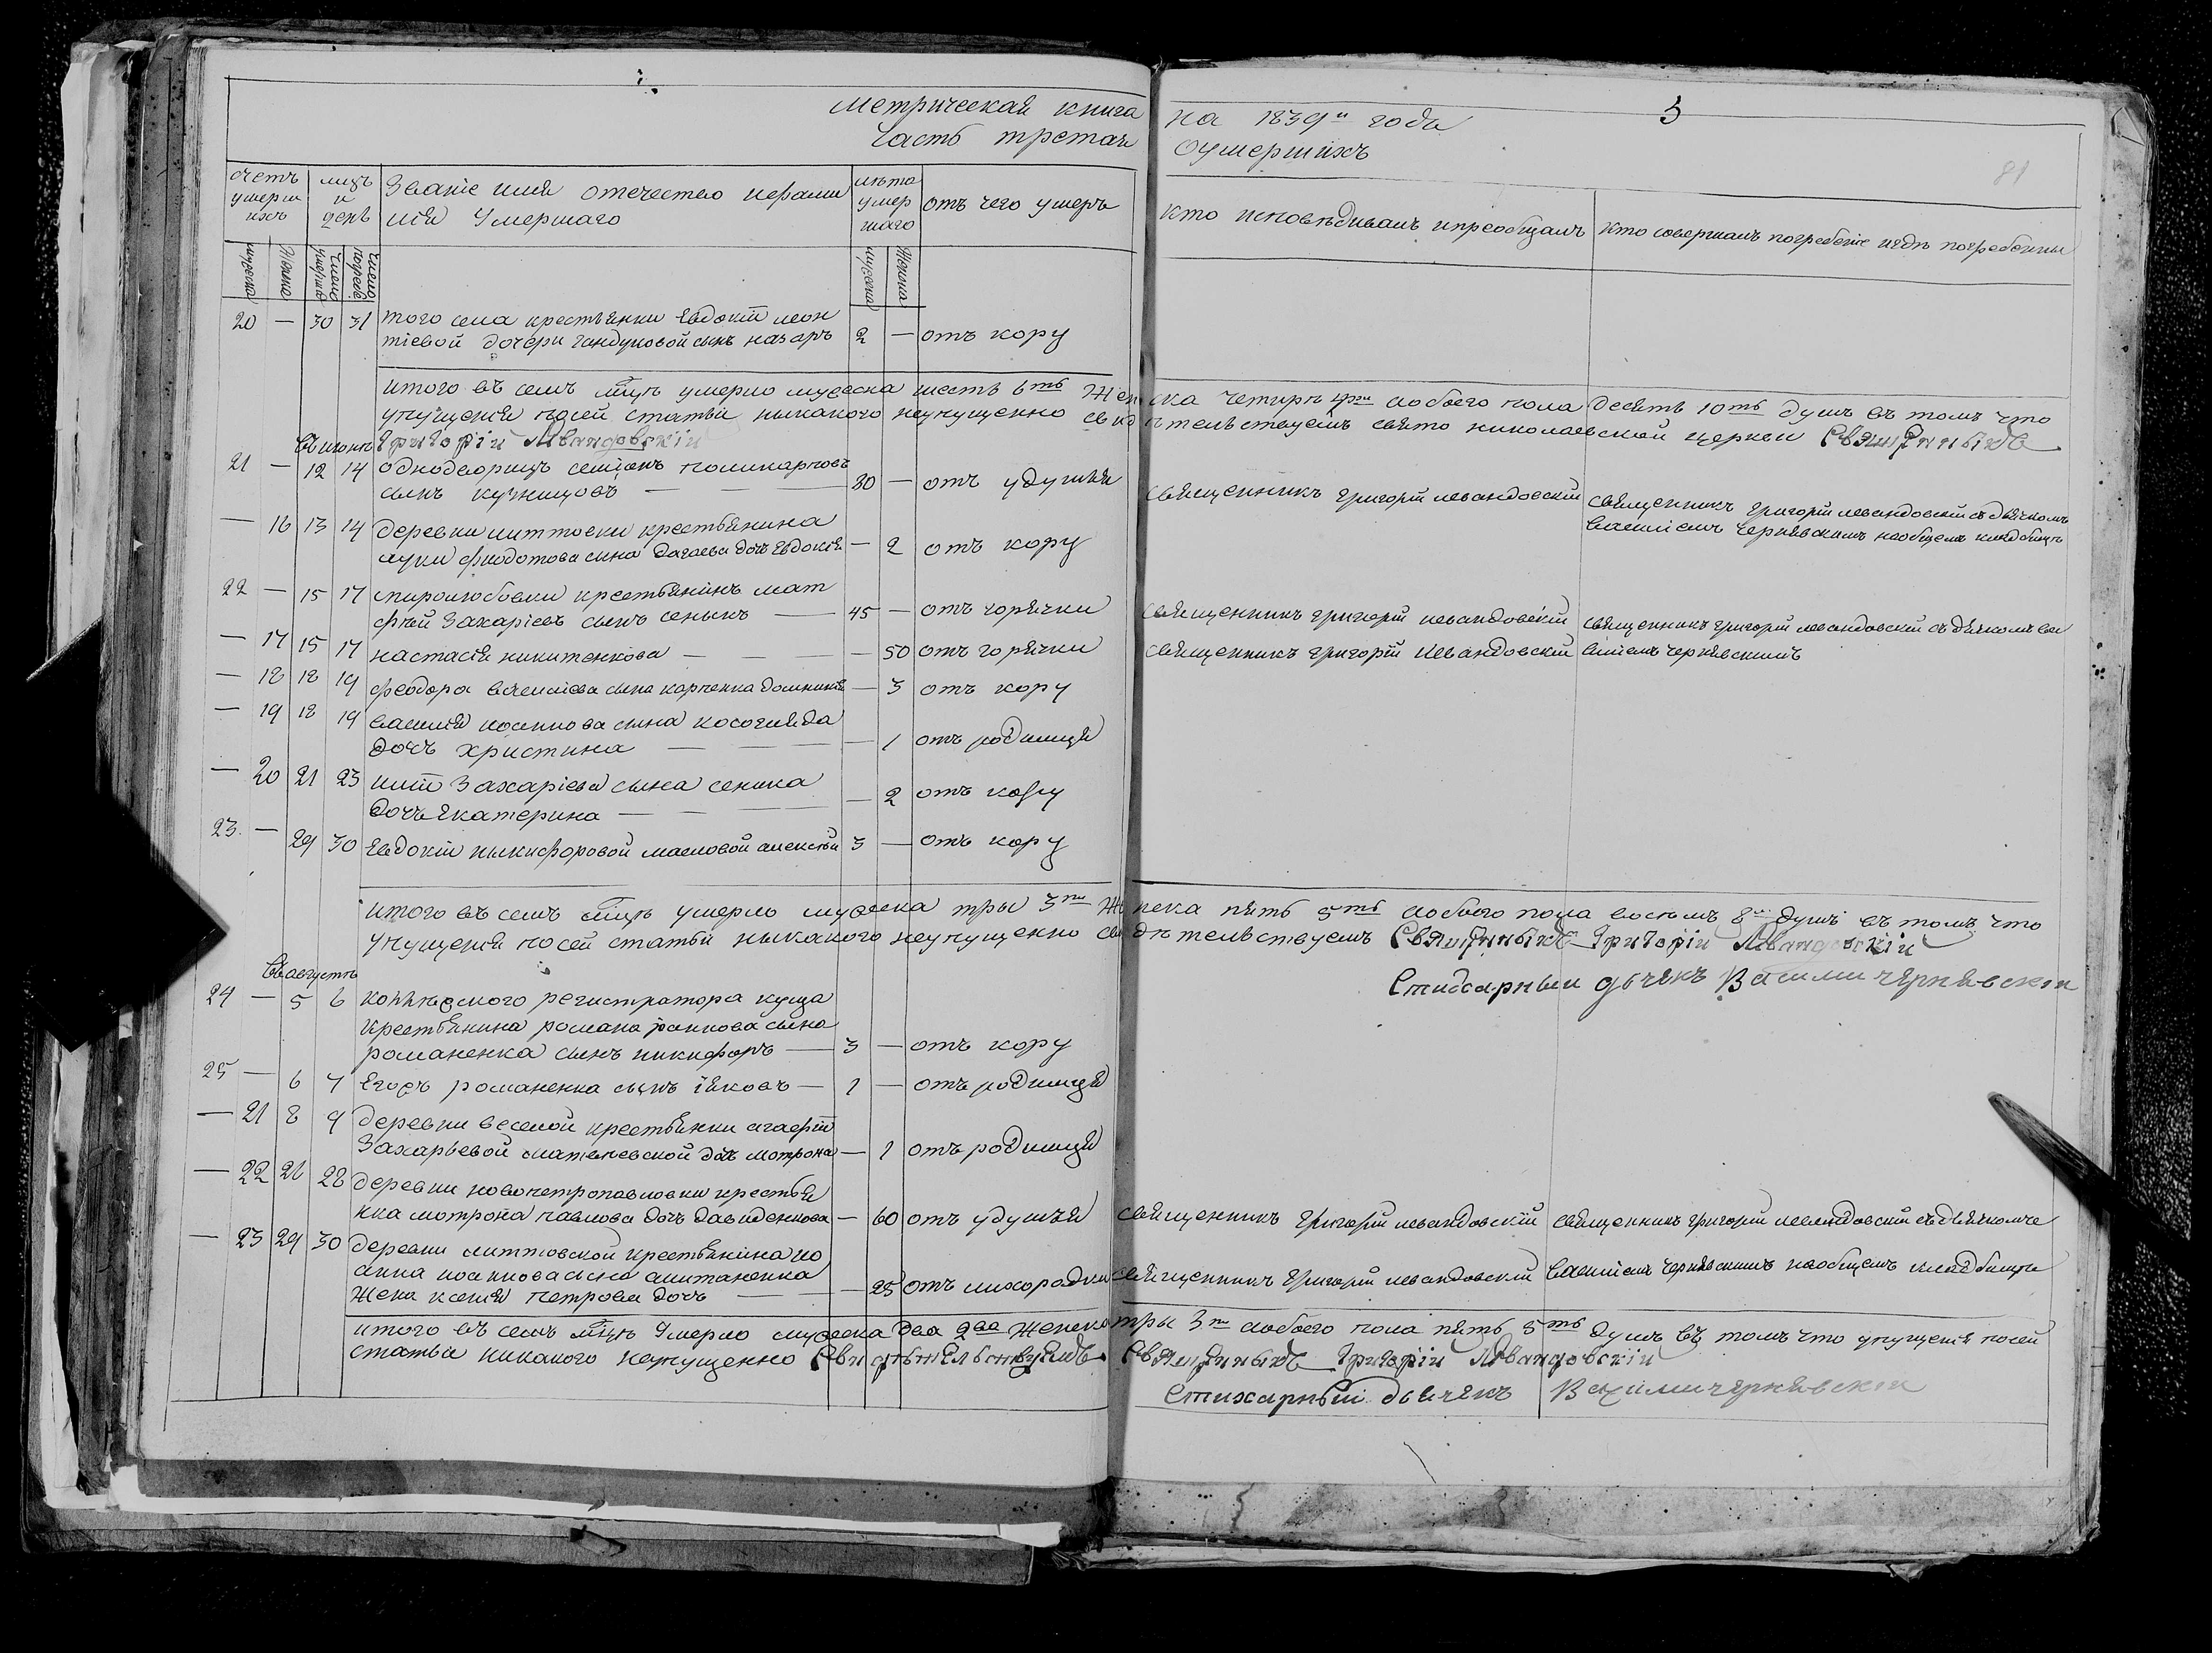 метрическая книга на 1839и года
5
часть третаи оумершихъ
81
счетъ умерш ихъ
мцъ и денъ
Званiе имя отечество ифами лiя Умершаго
лѣта умер шаго
отъ чего умеръ
кто исповѣдивалъ ипреобщалъ
кто совершалъ погребенiе игдѣ погребенны
мужеска
Женска
Число умертв
Число погреб
мужеска
Женска
20 — 30 31 того села крестьянки Евдокiи леон
тiевой дочери гандуковой сынъ назаръ 2 — отъ кору
итого въ семъ мцѣ умерло мужеска шесть 6ть Женска четирѣ 4ри иобоего пола десять 10ть душъ въ томъ что
упущенiя посей статьи ныкакого неупущенно свидѣтельствуемъ свято николаевской церкви Священныкъ
Григорiи Левандовскiи
Въ июнѣ
21 — 12 14 однодворецъ семiонъ поликарповъ
сынъ кузнецовъ — 80 — отъ удушъя священникъ григорiй левандовскiй священникъ григорiй левандовскiй съ дьячкомъ
— 16 13 14 деревни литовки крестьянина василiемъ чернявскимъ наобщемъ кладбищѣ
луки фиодотова сына дагаева дочъ Евдокiя — 2 отъ кору
22 — 15 17 миролюбовки крестьянинъ мат
фѣй Захарiевъ сынъ сеныкъ — 45 — отъ горячки священникъ григорiй левандовскiй священникъ григорiй левандовскiй съ дячкомъ ва
— 17 15 17 настасiя никитенкова — — 50 отъ горячки священникъ григорiй левандовскiй силiемъ чернявскимъ
— 18 18 19 феодора василiева сына карпенка домникiя — 3 отъ кору
— 19 18 19 василiя иосипова сына косогляда
дочъ христина — — 1 отъ родимця
— 20 21 23 тита Захарiева сына сеника
дочъ Екатерина — — 2 отъ кору
23 — 29 30 Евдокiи ныкифоровой масловой алексѣй 3 — отъ кору
итого въ семъ мцѣ умерло мужеска тры 3ри Женска пять 5ть иобоего пола восемъ 8м душъ въ томъ что
упущенiя посей статьи ныкакого неупущенно свидѣтельствуемъ Священныкъ Григорiи Левандовскiи
Стихарныи дьячекъ Василии чернявскiи
Въ августѣ
24 — 5 6 колѣжского регистратора куща
крестьянина романа
романенка сынъ никифоръ — 3 — отъ кору
25 — 6 7 Егоръ романенка сынъ iяковъ — 1 — отъ родимця
— 21 8 9 деревни веселой крестьянки агафiи
Захарьевой дочъ мотрона — 1 отъ родимця
— 22 26 28 деревни новопетропавловки крестья
нка мотрона павлова дочъ давиденкова — 60 отъ удушъя священникъ григорiй левандовскiй священникъ григорiй левандовскiй съ дьячкомъ
— 23 29 30 деревни литтовской крестьянина ио
анна иосипова сына
Жена ксенiя петрова дочъ — — 25 отъ лихорадки священникъ григорiй левандовскiй василiемъ чернявскимъ наобщемъ кладбищѣ
итого въ семъ мцѣ Умерло мужеска два 2ва Женска тры 3ри иобоего пола пять 5ть душъ въ томъ что упущенiя посей
статьи никакого неупущенно Свидѣтельствуемъ Священныкъ Григорiи Левандовскiи
Стихарный дьячекъ Василии чернявскiи